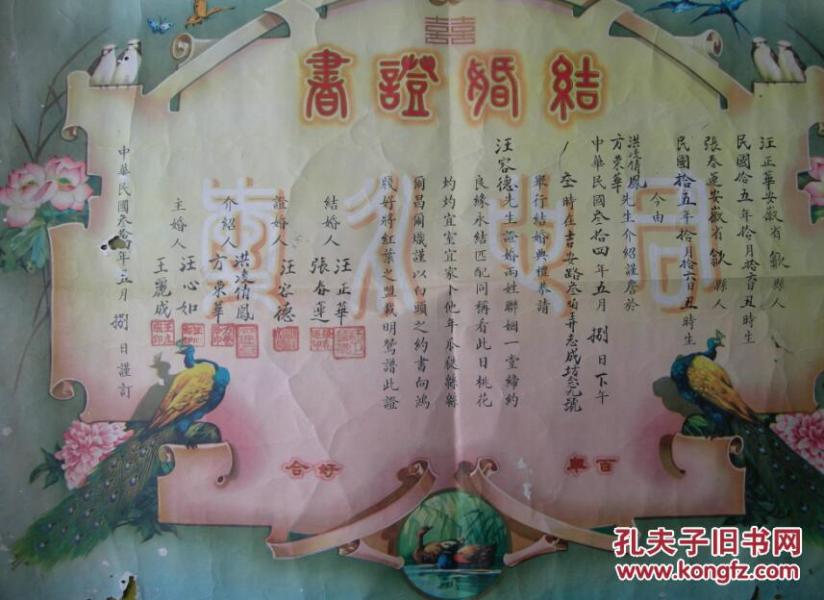 囍
書證婚結
汪正華安徽省歙縣人
民國拾五年拾月拾六日丑時生
張春蓮安徽省歙縣人
民國拾五年拾月拾六日丑時生
今由
洪倩鳳
方東華先生介紹謹詹於
中華民國叁拾四年五月捌日下午
時在吉安路叁
舉行結婚典禮恭請
汪容德先生證婚兩姓聯姻一堂締約
良緣永結匹配同稱看此日桃花
灼灼宜室宜家卜他年瓜瓞緜緜
爾昌爾熾謹以白頭之約書向鴻
牋好將紅葉之盟載明鴛譜此證
結婚人
汪正華
張春蓮
證婚人
汪容德
介紹人
洪倩鳳
方東華
主婚人
汪心如
王麗成
中華民國叁拾四年五月捌日謹訂
合好
年百
孔夫子旧书网
www.kongfz.com